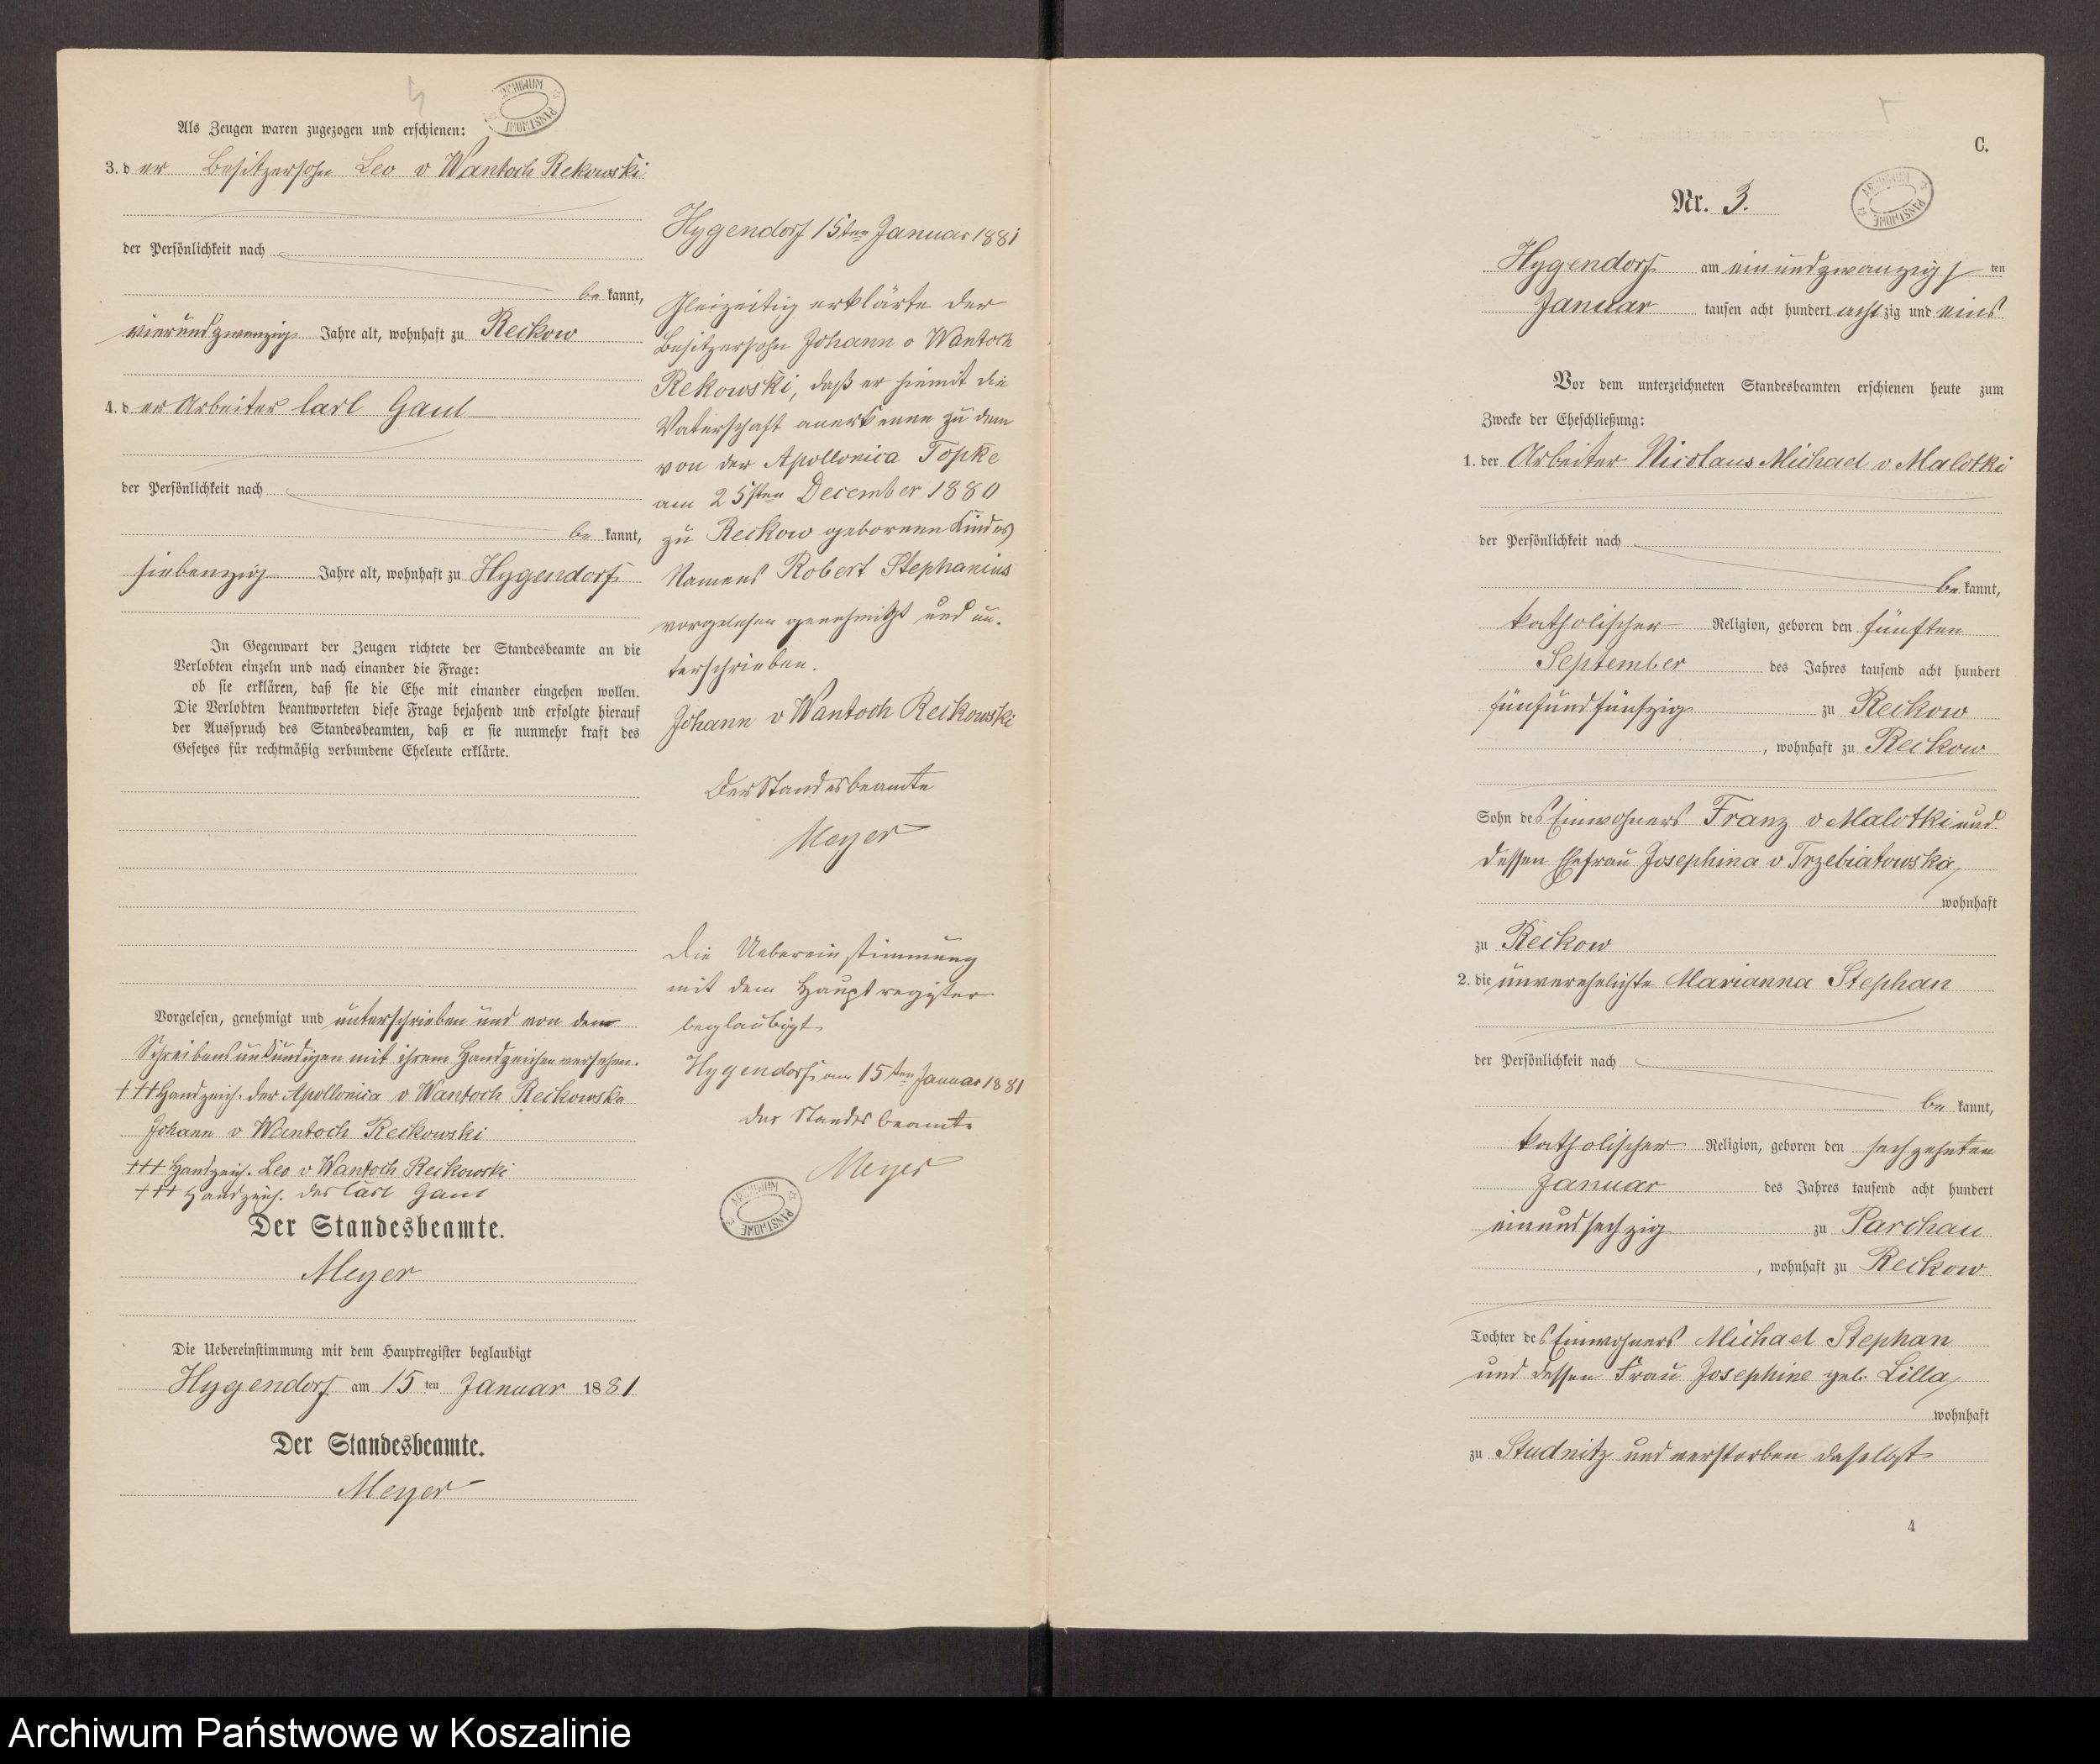 Als Zeugen waren zugezogen und erschienen:
3. d er Besitzersohn Leo v Wantoch Rekowski
der Persönlichkeit nach
be kannt,
vierundzwanzig Jahre alt, wohnhaft zu Reckow
4. d er Arbeiter Carl Gaul
der Persönlichkeit nach
be kannt,
siebenzig Jahre alt, wohnhaft zu Hygendorf
In Gegenwart der Zeugen richtete der Standesbeamte an die
Verlobten einzeln und nach einander die Frage:
ob sie erklären, daß sie die Ehe mit einander eingehen wollen.
Die Verlobten beantworteten diese Frage bejahend und erfolgte hierauf
der Ausspruch des Standesbeamten, daß er sie nunmehr kraft des
Gesetzes für rechtmäßig verbundene Eheleute erklärte.
Vorgelesen, genehmigt und unterschrieben und von dem
Schreibensunkundigen mit ihrem Handzeichen versehen.
+++ Handzeich. der Apollonica v Wantoch Reckowska
Johann v Wantoch Reckowski
+++ Handzeich. Leo v Wantoch Reckowski
+++ Handzeich. des Carl Gaul
Der Standesbeamte.
Meyer
Die Uebereinstimmung mit dem Hauptregister beglaubigt
Hygendorf am 15 ten Januar 1881
Der Standesbeamte.
Meyer
Hygendorf 15ten Januar 1881
Gleizeitig erklärte der
Besitzersohn Johann v Wantoch
Rekowski, daß er hiemit die
Vaterschaft anerkenne zu dem
von der Apollonica Topke
am 25sten December 1880
zu Reckow geborenen Kindes
Namens Robert Stephanius
vorgelesen genehmigt und un-
terschrieben.
Johann v Wantoch Reckowski
Der Standesbeamte
Meyer
Die Uebereinstimmung
mit dem Hauptregister
beglaubigt
Hygendorf am 15ten Januar 1881
Der Standesbeamte
Meyer
ARCHIWUM PAŃSTWOWE
C.
Nr. 3.
Hygendorf am einundzwanzigs ten
Januar tausen acht hundert acht zig und eins
Vor dem unterzeichneten Standesbeamten erschienen heute zum
Zwecke der Eheschließung:
1. der Arbeiter Nicolaus Michael v Malotki
der Persönlichkeit nach
be kannt,
katholischer Religion, geboren den fünften
September des Jahres tausend acht hundert
fünfundfünfzig zu Reckow
, wohnhaft zu Reckow
Sohn des Einwohners Franz v Malotki und
dessen Ehefrau Josephina v Trzebiatowska
wohnhaft
zu Reckow
2. die unverehelichte Marianna Stephan
der Persönlichkeit nach
be kannt,
katholischer Religion, geboren den sechzehnten
Januar des Jahres tausend acht hundert
einundsechzig zu Parchau
, wohnhaft zu Reckow
Tochter des Einwohners Michael Stephan
und dessen Frau Josephine geb. Lilla
wohnhaft
zu Studnitz und verstorben daselbst
4
Archiwum Państwowe w Koszalinie